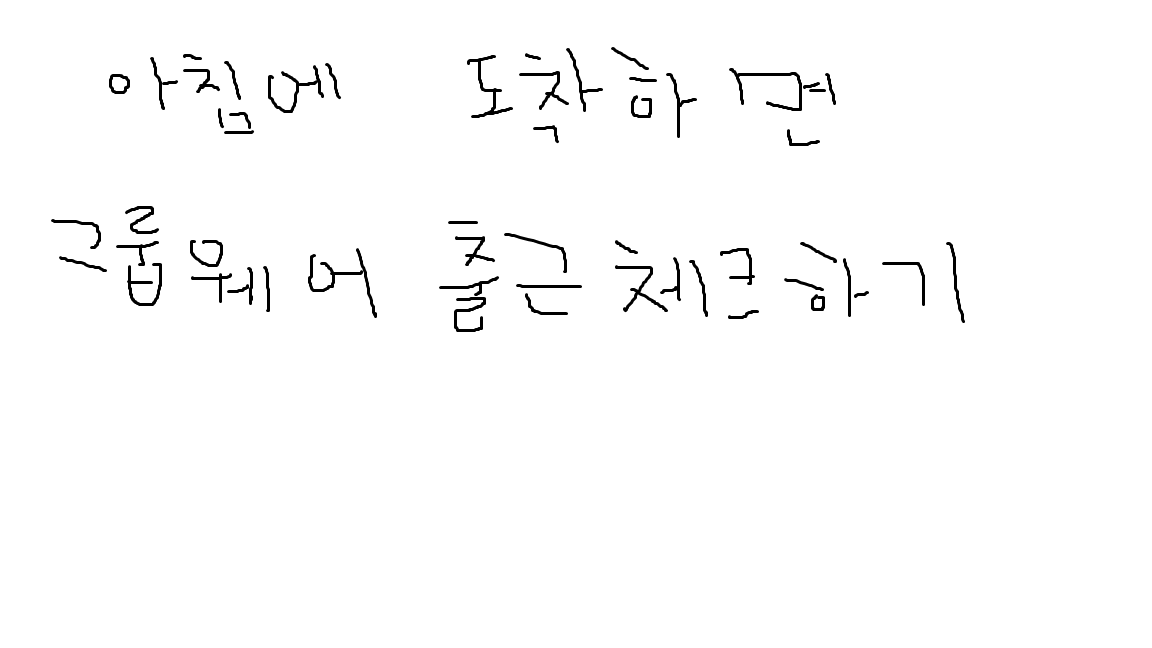 아침에 도착하면
그룹웨어 출근 체크하기